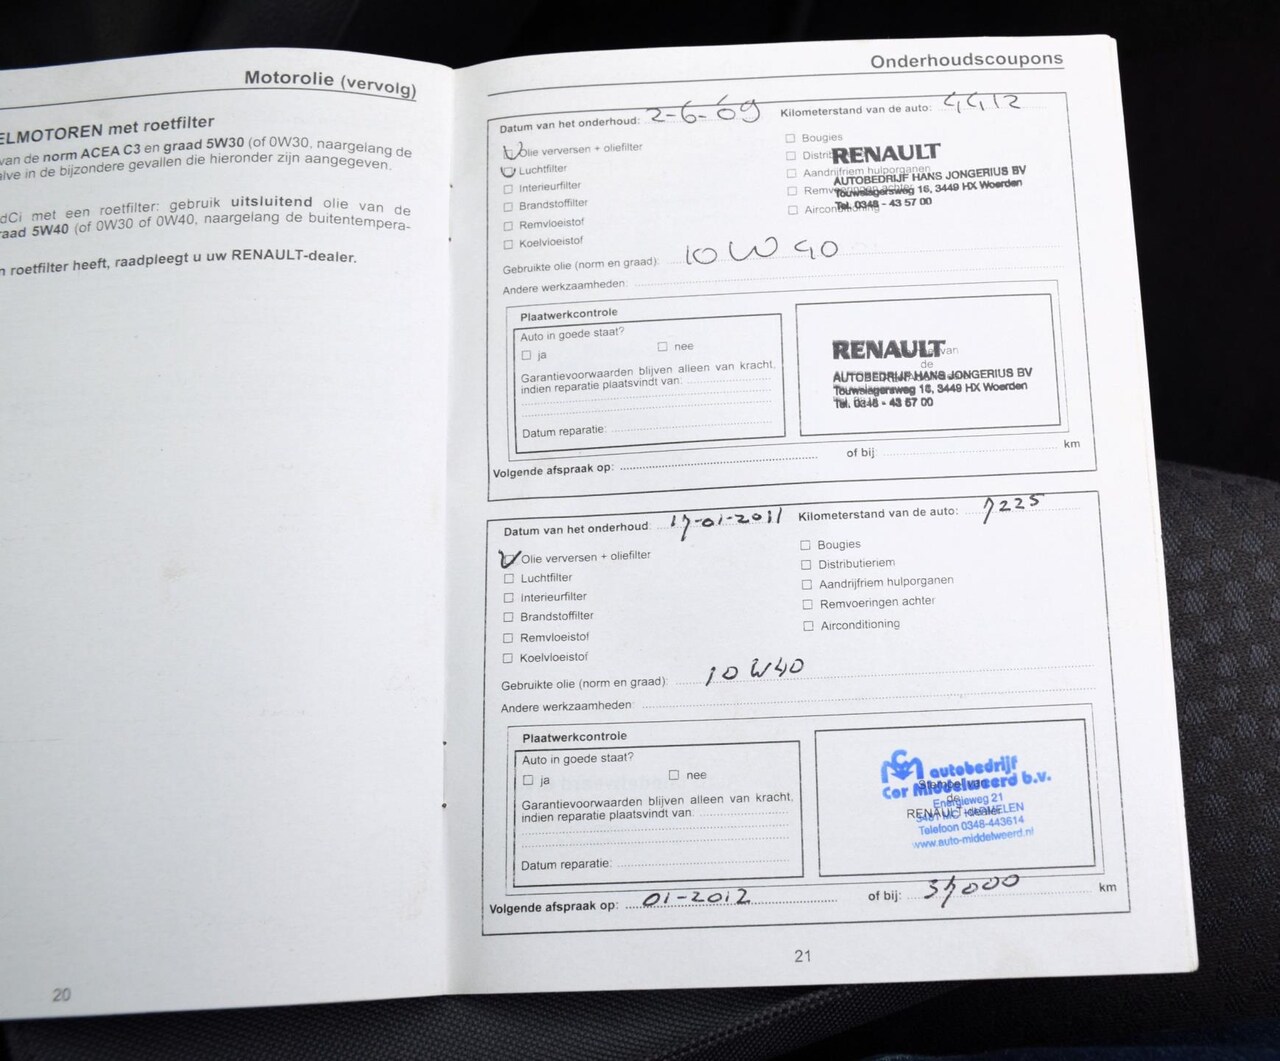 Motorolie (vervolg)
ELMOTOREN met roetfilter
van de norm ACEA C3 en graad 5W30 (of 0W30, naargelang de
alve in de bijzondere gevallen die hieronder zijn aangegeven.
dCi met een roetfilter: gebruik uitsluitend olie van de
raad 5W40 (of 0W30 of 0W40, naargelang de buitentempera-
n roetfilter heeft, raadpleegt u uw RENAULT-dealer.
20
Onderhoudscoupons
Datum van het onderhoud: 2-6-09 Kilometerstand van de auto: 4412
Olie verversen + oliefilter
Luchtfilter
Interieurfilter
Brandstoffilter
Remvloeistof
Koelvloeistof
Bougies
Aandrijfriem hulporganen
Remvoeringen achter
Airconditioning
RENAULT
AUTOBEDRIJF HANS JONGERIUS BV
Touwslagersweg 16, 3449 HX Woerden
Tel. 0348 - 43 57 00
Gebruikte olie (norm en graad): 10W40
Andere werkzaamheden:
Plaatwerkcontrole
Auto in goede staat?
ja nee
Garantievoorwaarden blijven alleen van kracht,
indien reparatie plaatsvindt van:
Datum reparatie:
RENAULT van
de
AUTOBEDRIJF HANS JONGERIUS BV
Touwslagersweg 16, 3449 HX Woerden
Tel. 0348 - 43 57 00
Volgende afspraak op: of bij: km
Datum van het onderhoud: 17-01-2011 Kilometerstand van de auto: 7225
Olie verversen + oliefilter
Luchtfilter
Interieurfilter
Brandstoffilter
Remvloeistof
Koelvloeistof
Bougies
Distributieriem
Aandrijfriem hulporganen
Remvoeringen achter
Airconditioning
Gebruikte olie (norm en graad): 10W40
Andere werkzaamheden:
Plaatwerkcontrole
Auto in goede staat?
ja nee
Garantievoorwaarden blijven alleen van kracht,
indien reparatie plaatsvindt van:
Datum reparatie:
autobedrijf
Cor Middelweerd b.v.
Stempel van
de
RENAULT-dealer
Energieweg 21
Telefoon 0348-443614
www.auto-middelweerd.nl
Volgende afspraak op: 01-2012 of bij: 37000 km
21